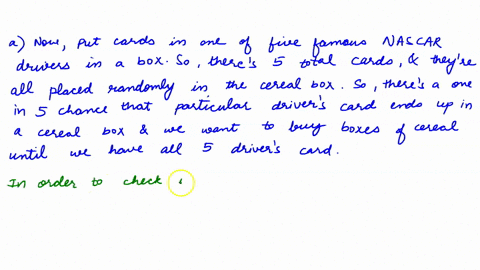 a) Now, put cards in one of five famous NASCAR
drivers in a box. So, there's 5 total cards, & they're
all placed randomly in the cereal box. So, there's a one
in 5 chance that particular driver's card ends up in
a cereal box & we want to buy boxes of cereal
until we have all 5 driver's card.
In order to check